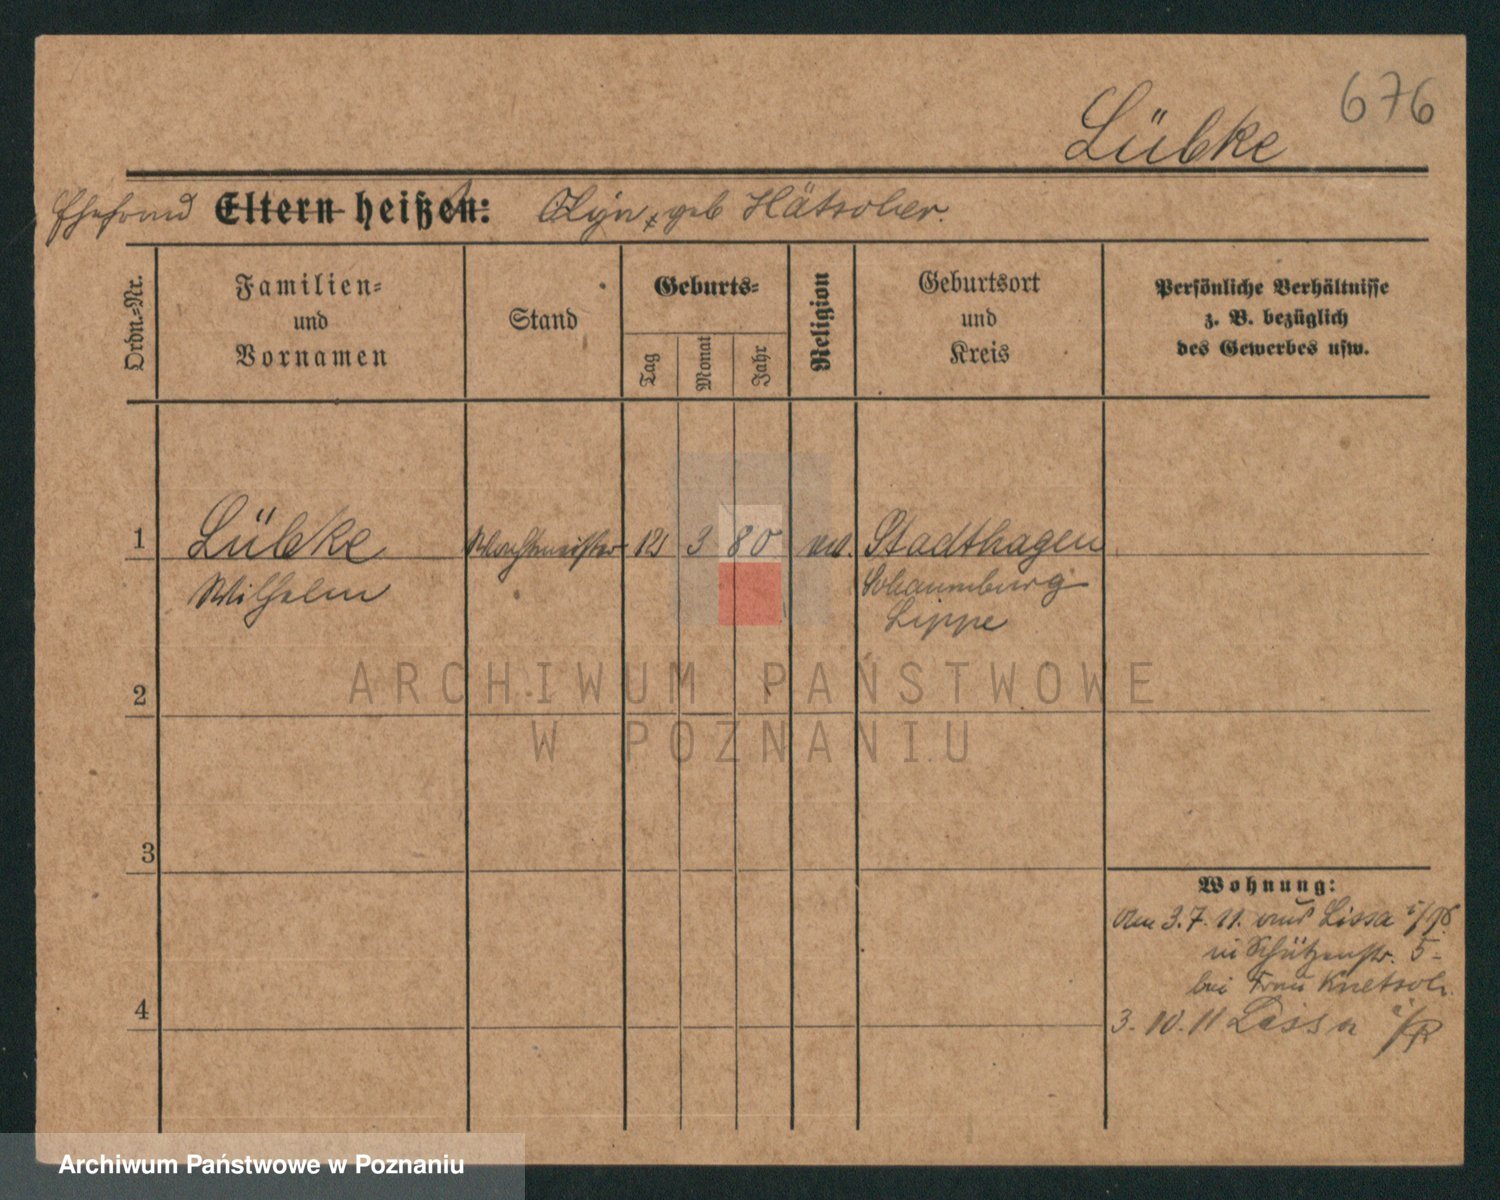 676
Lübke
Ehefrau Eltern heißen: geb Hätscher.
Ordn.-Nr.
Familien-
und
Vornamen
Stand
Geburts-
Tag
Monat
Jahr
Religion
Geburtsort
und
Kreis
Persönliche Verhältnisse
z. B. bezüglich
des Gewerbes usw.
1 Lübke Wachtmeister 12 3 80 ev. Stadthagen
Wilhelm Schaumburg
Lippe
2
3
4
Wohnung:
Am 3.7.11. aus Lissa i/P.
in Schützenstr. 5-
bei Frau Knetsch.
3.10.11 Lissa i/P
ARCHIWUM PAŃSTWOWE
W POZNANIU
Archiwum Państwowe w Poznaniu